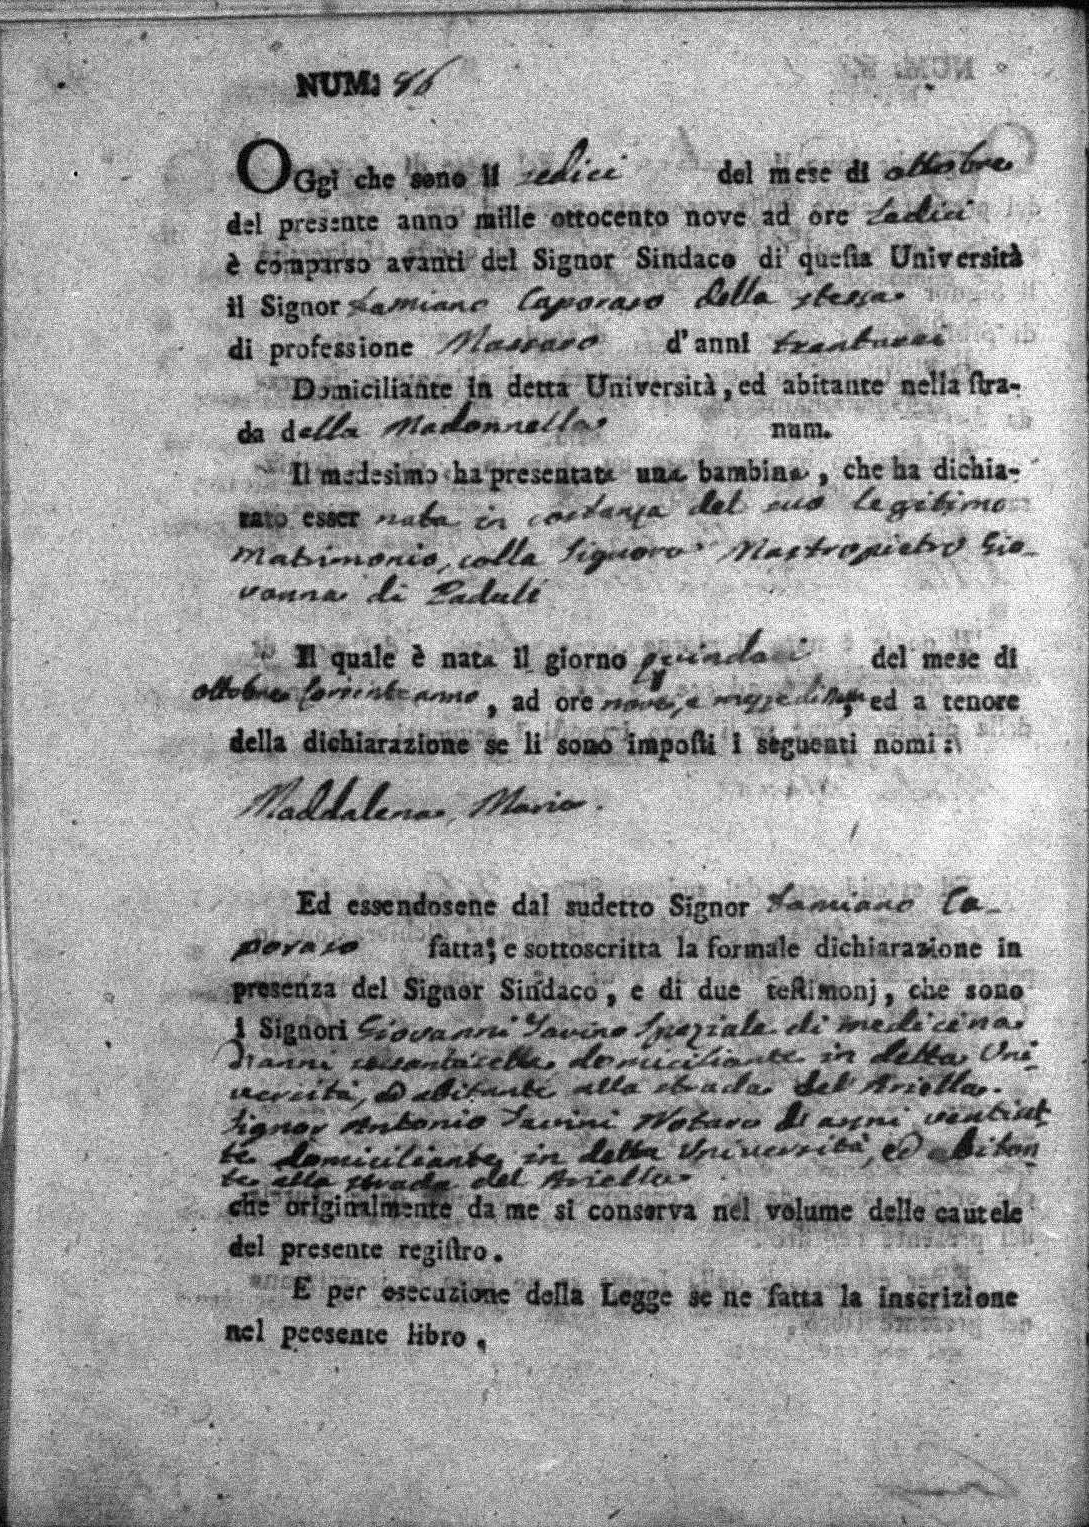 NUM: 86
OGgi che sono li sedici del mese di ottobre
del presente anno mille ottocento nove ad ore sedici
è comparso avanti del Signor Sindaco di questa Università
il Signor Damiano Caporaso della stessa
di professione Massaro d'anni trentasei
Domiciliante in detta Università, ed abitante nella stra-
da della Madonnella num.
Il medesimo ha presentata una bambina, che ha dichia-
rato esser nata in costanza del suo legitimo
matrimonio, colla Signora Mastropietro Gio-
vanna di Paduli
Il quale è nata il giorno quindici del mese di
ottobre corrente anno, ad ore nove, e mezze di notte, ed a tenore
della dichiarazione se li sono imposti i seguenti nomi:
Maddalena, Maria.
Ed essendosene dal sudetto Signor Damiano Ca-
poraso fatta; e sottoscritta la formale dichiarazione in
presenza del Signor Sindaco, e di due testimonj, che sono
i Signori Giovanni Iavino Speziale di medicina
d'anni sessantasette domiciliante in detta Uni-
versità, ed abitante alla strada del Ariella.
Signor Antonio Iavini Notaro di anni ventiset-
te domiciliante in detta Università, ed abitan-
te alla strada del Ariella.
che originalmente da me si conserva nel volume delle cautele
del presente registro.
E per esecuzione della Legge se ne fatta la inscrizione
nel peesente libro.